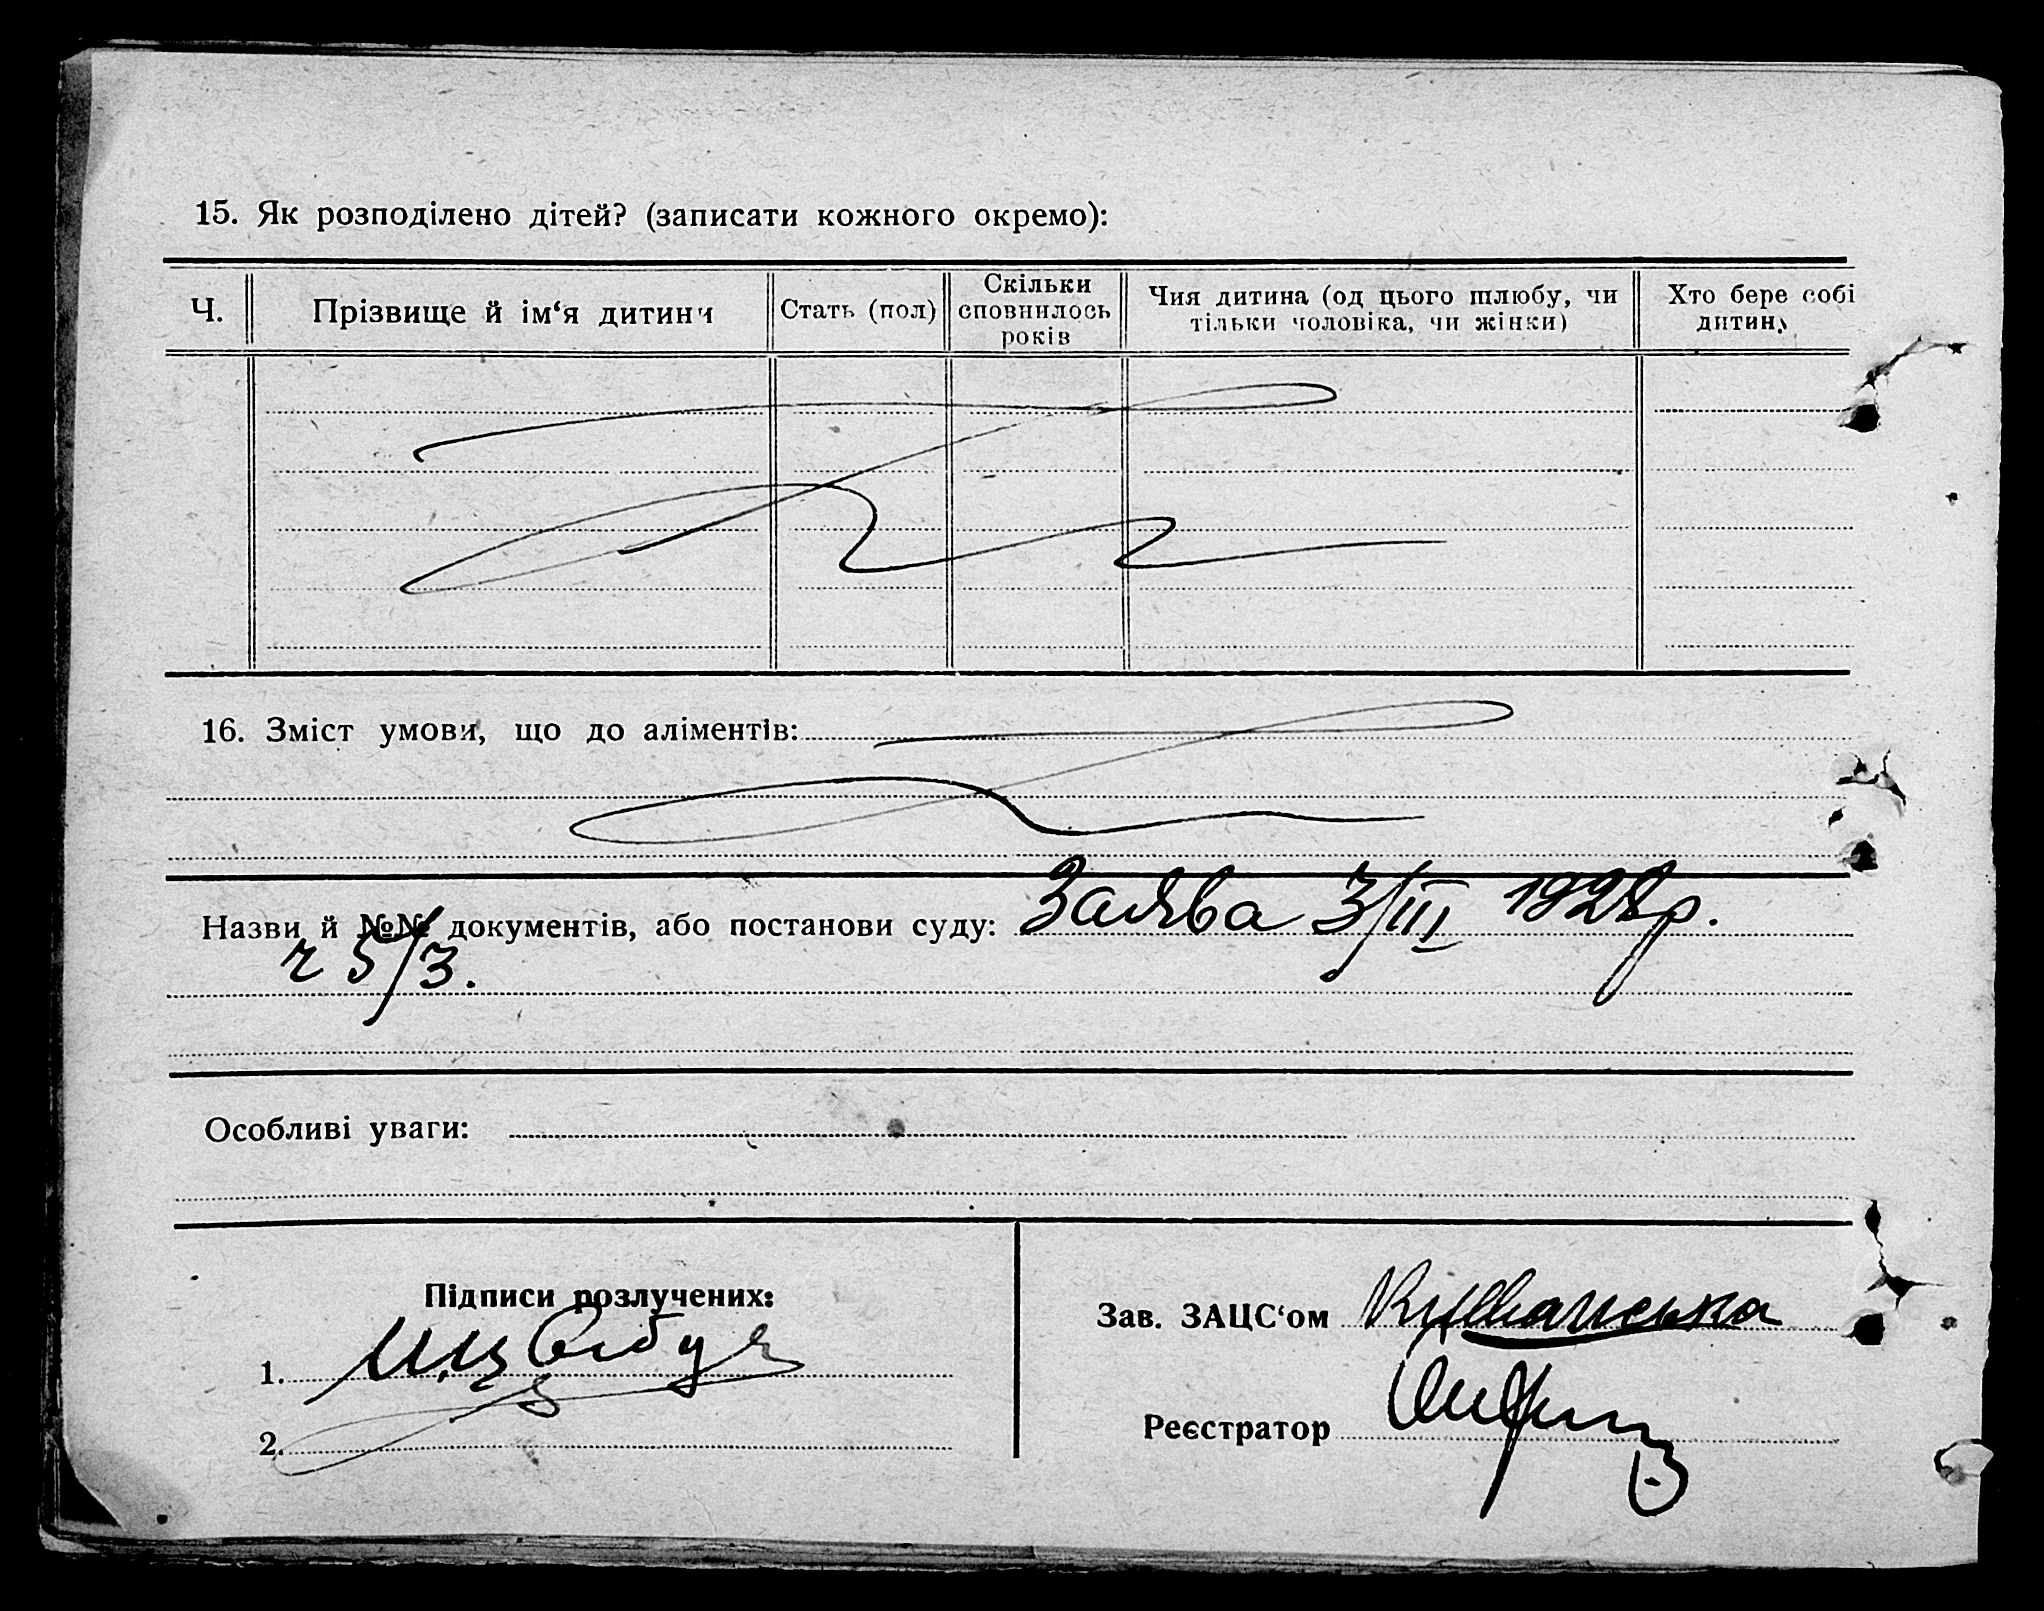 15. Як розподілено дітей? (записати кожного окремо):
Ч.
Прізвище й ім‘я дитини
Стать (пол)
Скільки
сповнилось
років
Чия дитина (од цього шлюбу, чи
тільки чоловіка, чи жінки)
Хто бере собі
дитину
16. Зміст умови, що до аліментів:
Назви й №№ документів, або постанови суду: Заява 3/III 1928р.
ч 5/3.
Особливі уваги:
Підписи розлучених:
1.
2.
Зав. ЗАЦС‘ом
Реєстратор